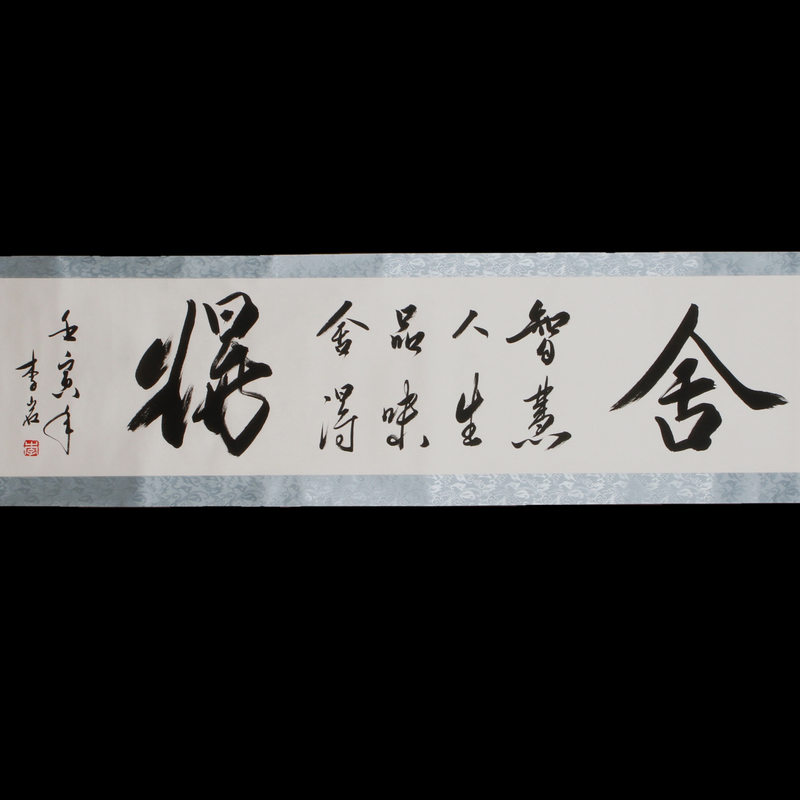 舍
智慧
人生
品味
舍得
得
壬寅年
李岩